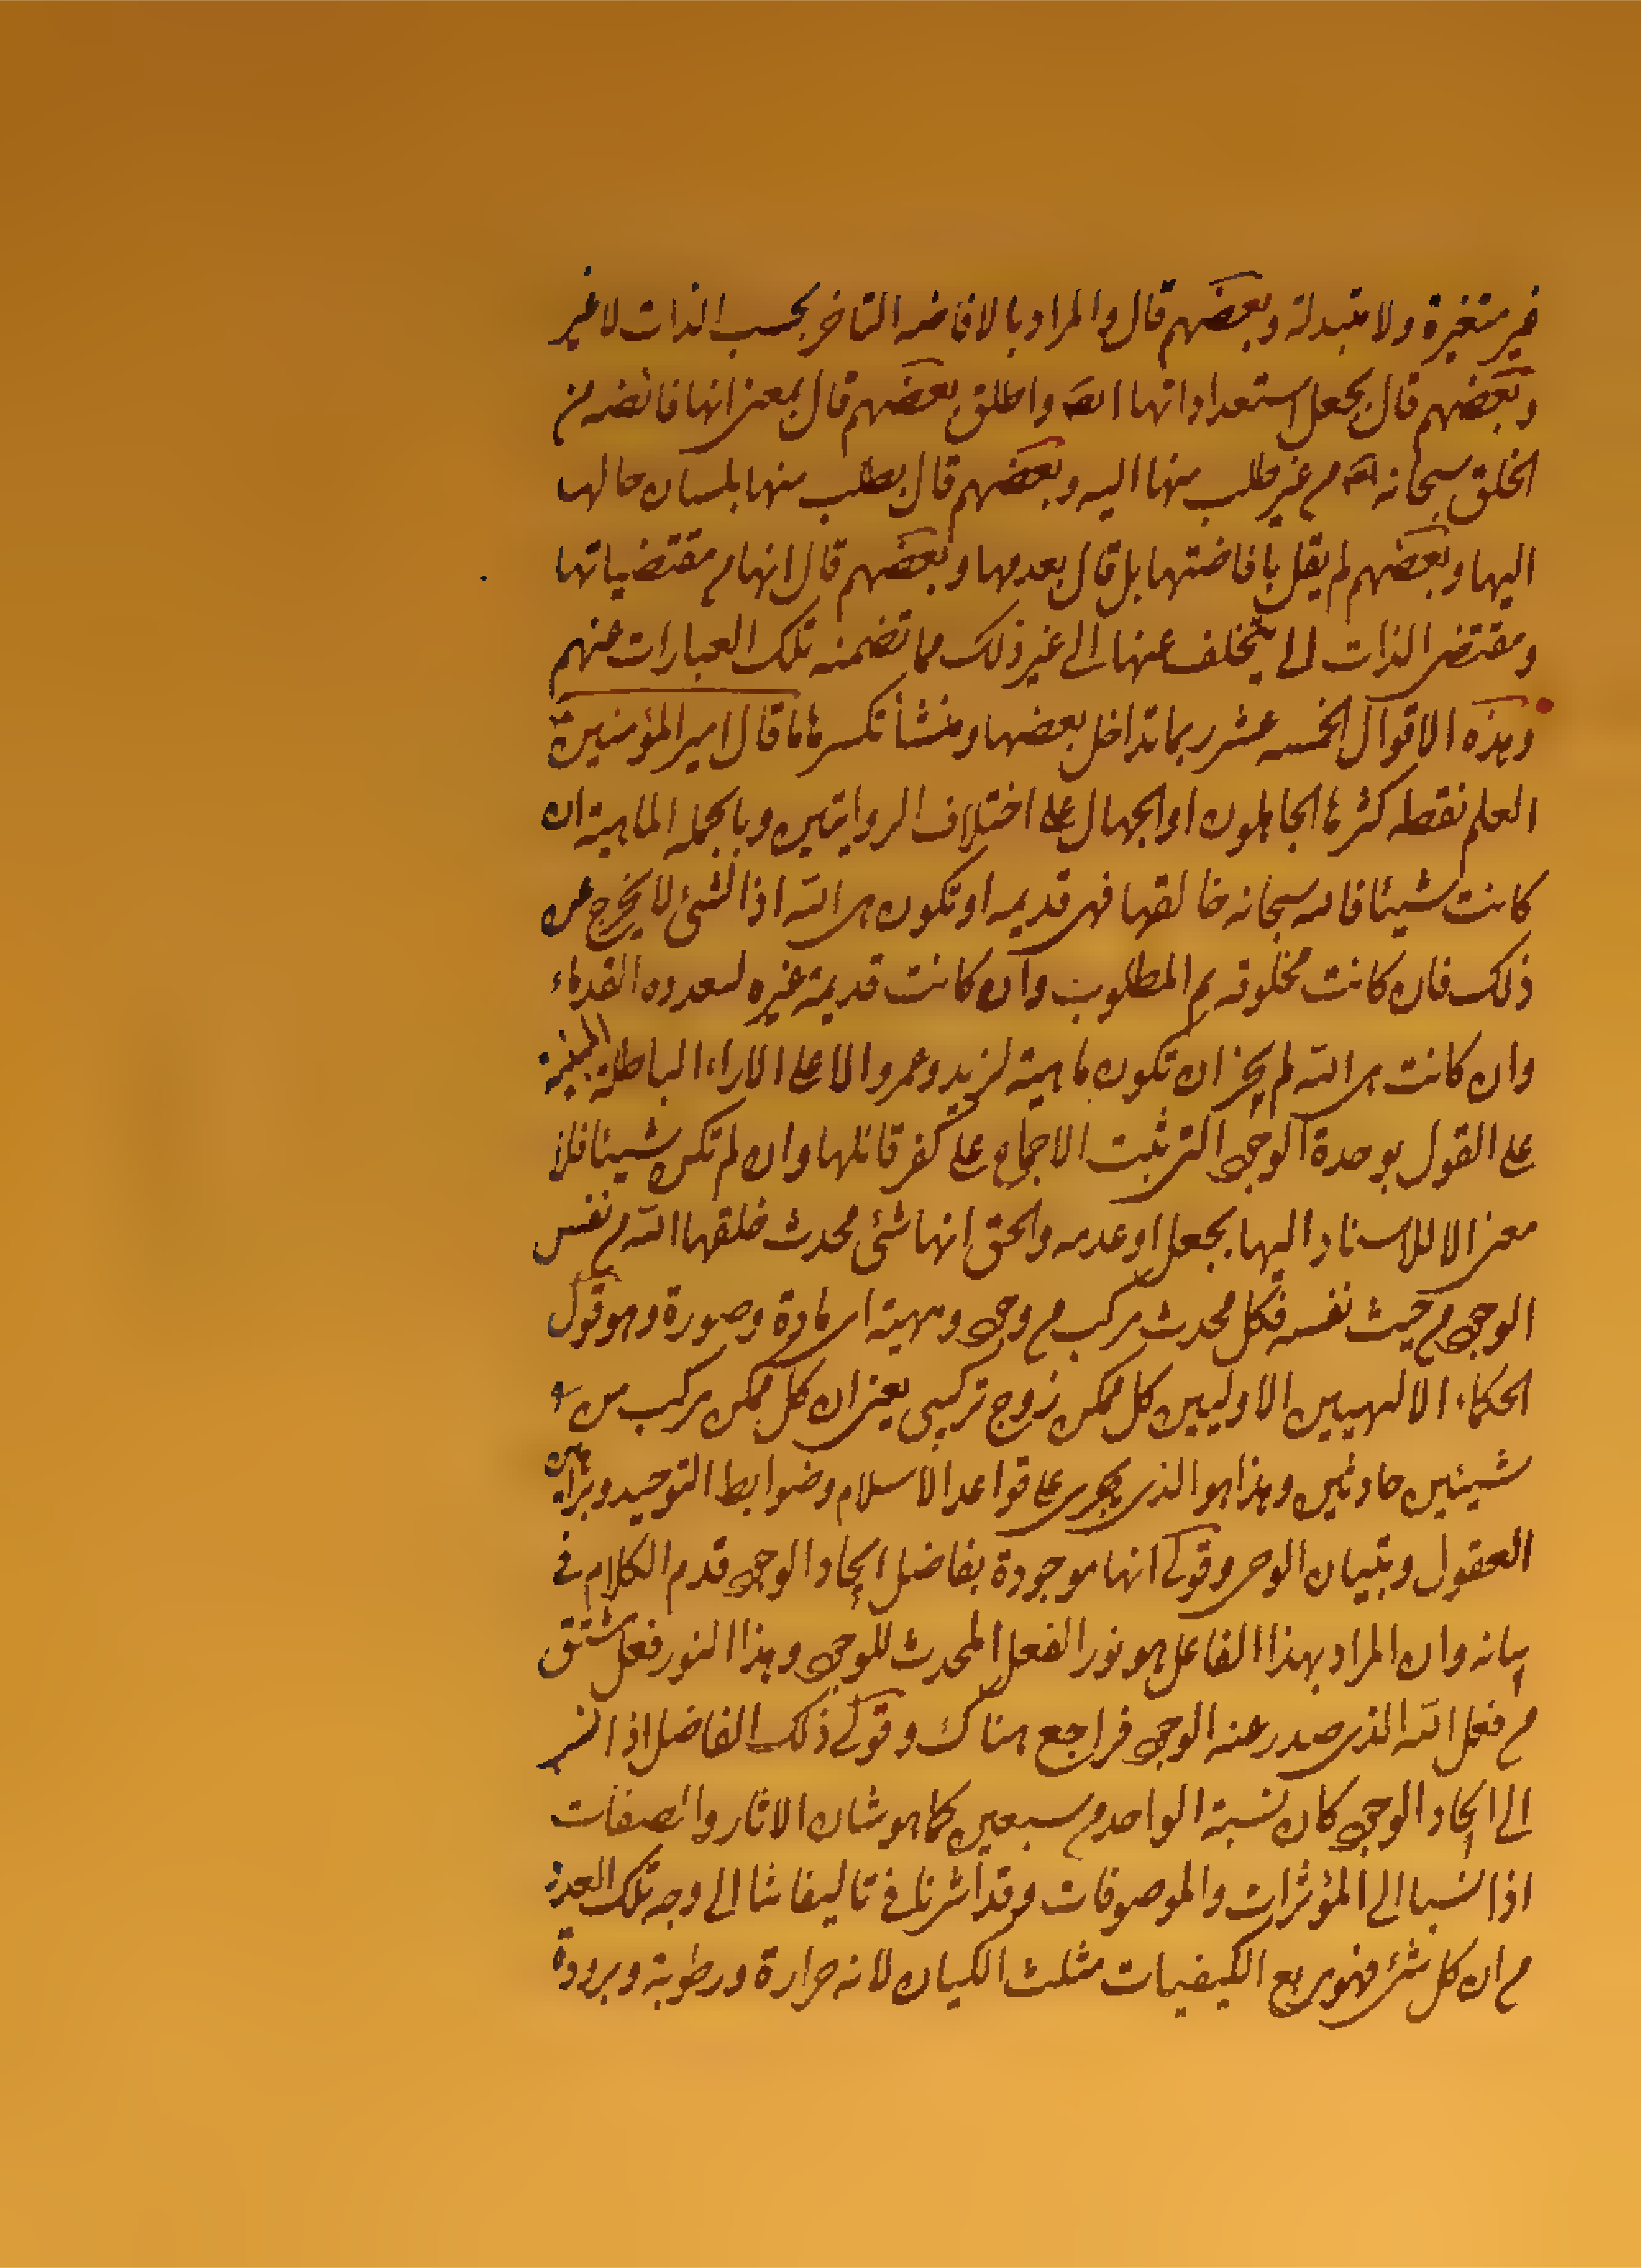 غير متغيرة ولا متبدلة وبعضهم قال والمراد بالافاضه التاخر بحسب الذات لا غير
وبعضهم قال بجعل استعداداتها ايضا واطلق بعضهم قال بمعنى انها فائضه من
الخلق سبحانه من غير طلب منها اليه وبعضهم قال بطلب منها بلسان حالها
اليها وبعضهم لم يقل بافاضتها بل قال بعدمها وبعضهم قال انها من مقتضياتها
ومقتضى الذات لا يتخلف عنها الى غير ذلك مما تضمنه تلك العبارات عنهم
وهذه الاقوال الخمسه عشر ربما تداخل بعضها ومنشأ تكسرها ما قال امير المؤمنين ع
العلم نقطه كثرها الجاهلون او الجهال على اختلاف الروايتين وبالجمله الماهية ان
كانت شيئا فالله سبحانه خالقها فهى قديمه او تكون هى الله اذ الشئ لا يخرج عن
ذلك فان كانت مخلوقه تم المطلوب وان كانت قديمة غيره تعددت القدماء
وان كانت هى الله لم يجز ان تكون ماهية لزيد وعمرو الا على الاراء الباطلة المبنية
على القول بوحدة الوجود التى ثبت الاجماع على كفر قائلها وان لم تكن شيئا فلا
معنى الا للاسناد اليها بجعل او عدمه والحق انها شئ محدث خلقها الله من نفس
الوجود من حيث نفسه فكل محدث مركب من وجود ومهية اى مادة وصورة وهو قول
الحكماء الالهيين الاوليين كل ممكن زوج تركيبى يعنى ان كل ممكن مركب من
شيئين حادثين وهذا هو الذى يجرى على قواعد الاسلام وضوابط التوحيد وبراهين
العقول وبتبيان الوحى وقولى انها موجودة بفاضل ايجاد الوجود قدم الكلام فى
بيانه وان المراد بهذا الفاعل هو نور الفعل المحدث للوجود وهذا النور فعل مشتق
من فعل الله الذى صدر عنه الوجود فراجع هناك وقولى ذلك الفاضل اذا نسب
الى ايجاد الوجود كان نسبة الواحد من سبعين كما هو شان الاثار والصفات
اذا نسبا الى المؤثرات والموصوفات وقد اشرنا فى تاليفاتنا الى وجه تلك العدد
من ان كل شئ فهو مربع الكيفيات مثلث الكيان لانه حرارة ورطوبة وبرودة